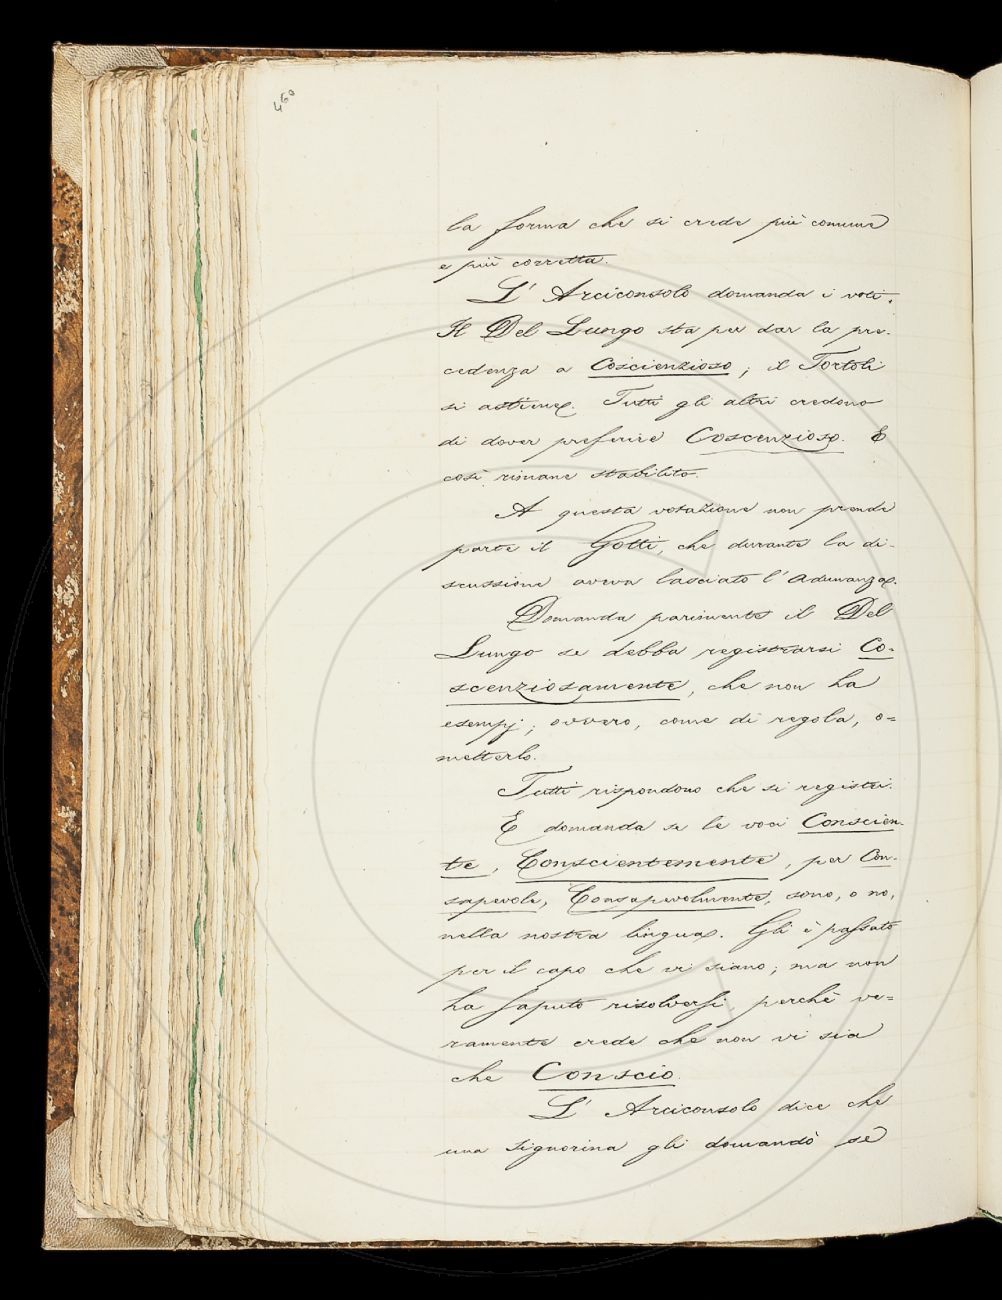 460
la forma che si crede più comune
e più corretta.
L' Arciconsolo domanda i voti.
Il Del Lungo sta per dar la pre-
cedenza a Coscienzioso; il Tortoli
si astiene. Tutti gli altri credono
di dover preferire Coscenzioso. E
così rimane stabilito.
A questa votazione non prende
parte il Gotti, che durante la di-
scussione aveva lasciato l' Adunanza.
Domanda parimente il Del
Lungo se debba registrarsi Co-
scenziosamente, che non ha
esempj; ovvero, come di regola, o=
metterlo.
Tutti rispondono che si registri.
E domanda se le voci Conscien-
te, Conscientemente, per Con-
sapevole, Consapevolmente, sono, o no,
nella nostra lingua. Gli è passato
per il capo che vi siano; ma non
ha saputo risolversi, perchè ve=
ramente crede che non vi sia
che Conscio.
L' Arciconsolo dice che
una signorina gli domandò se